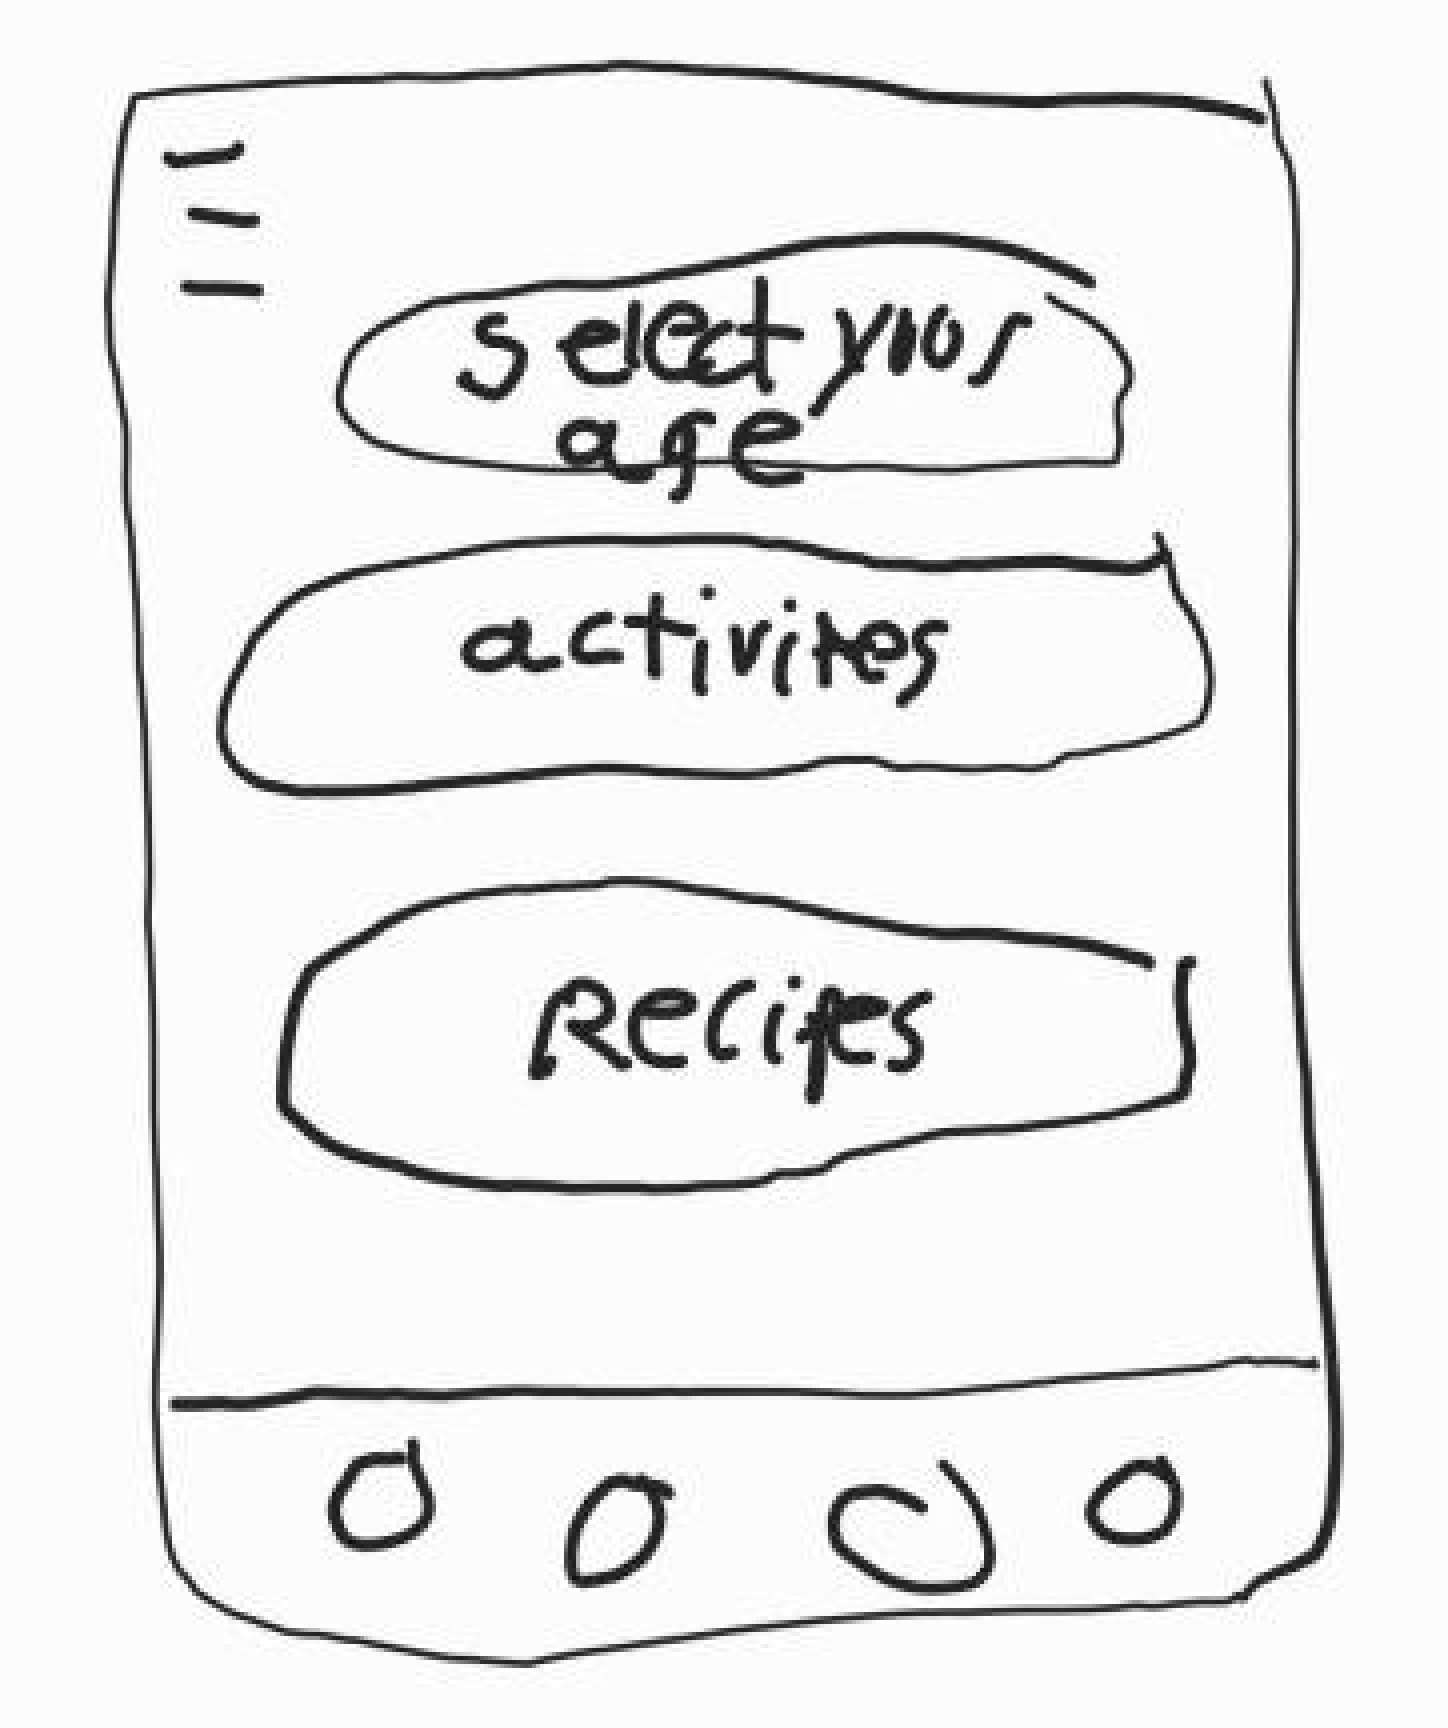 select yios
age
activites
Recipes